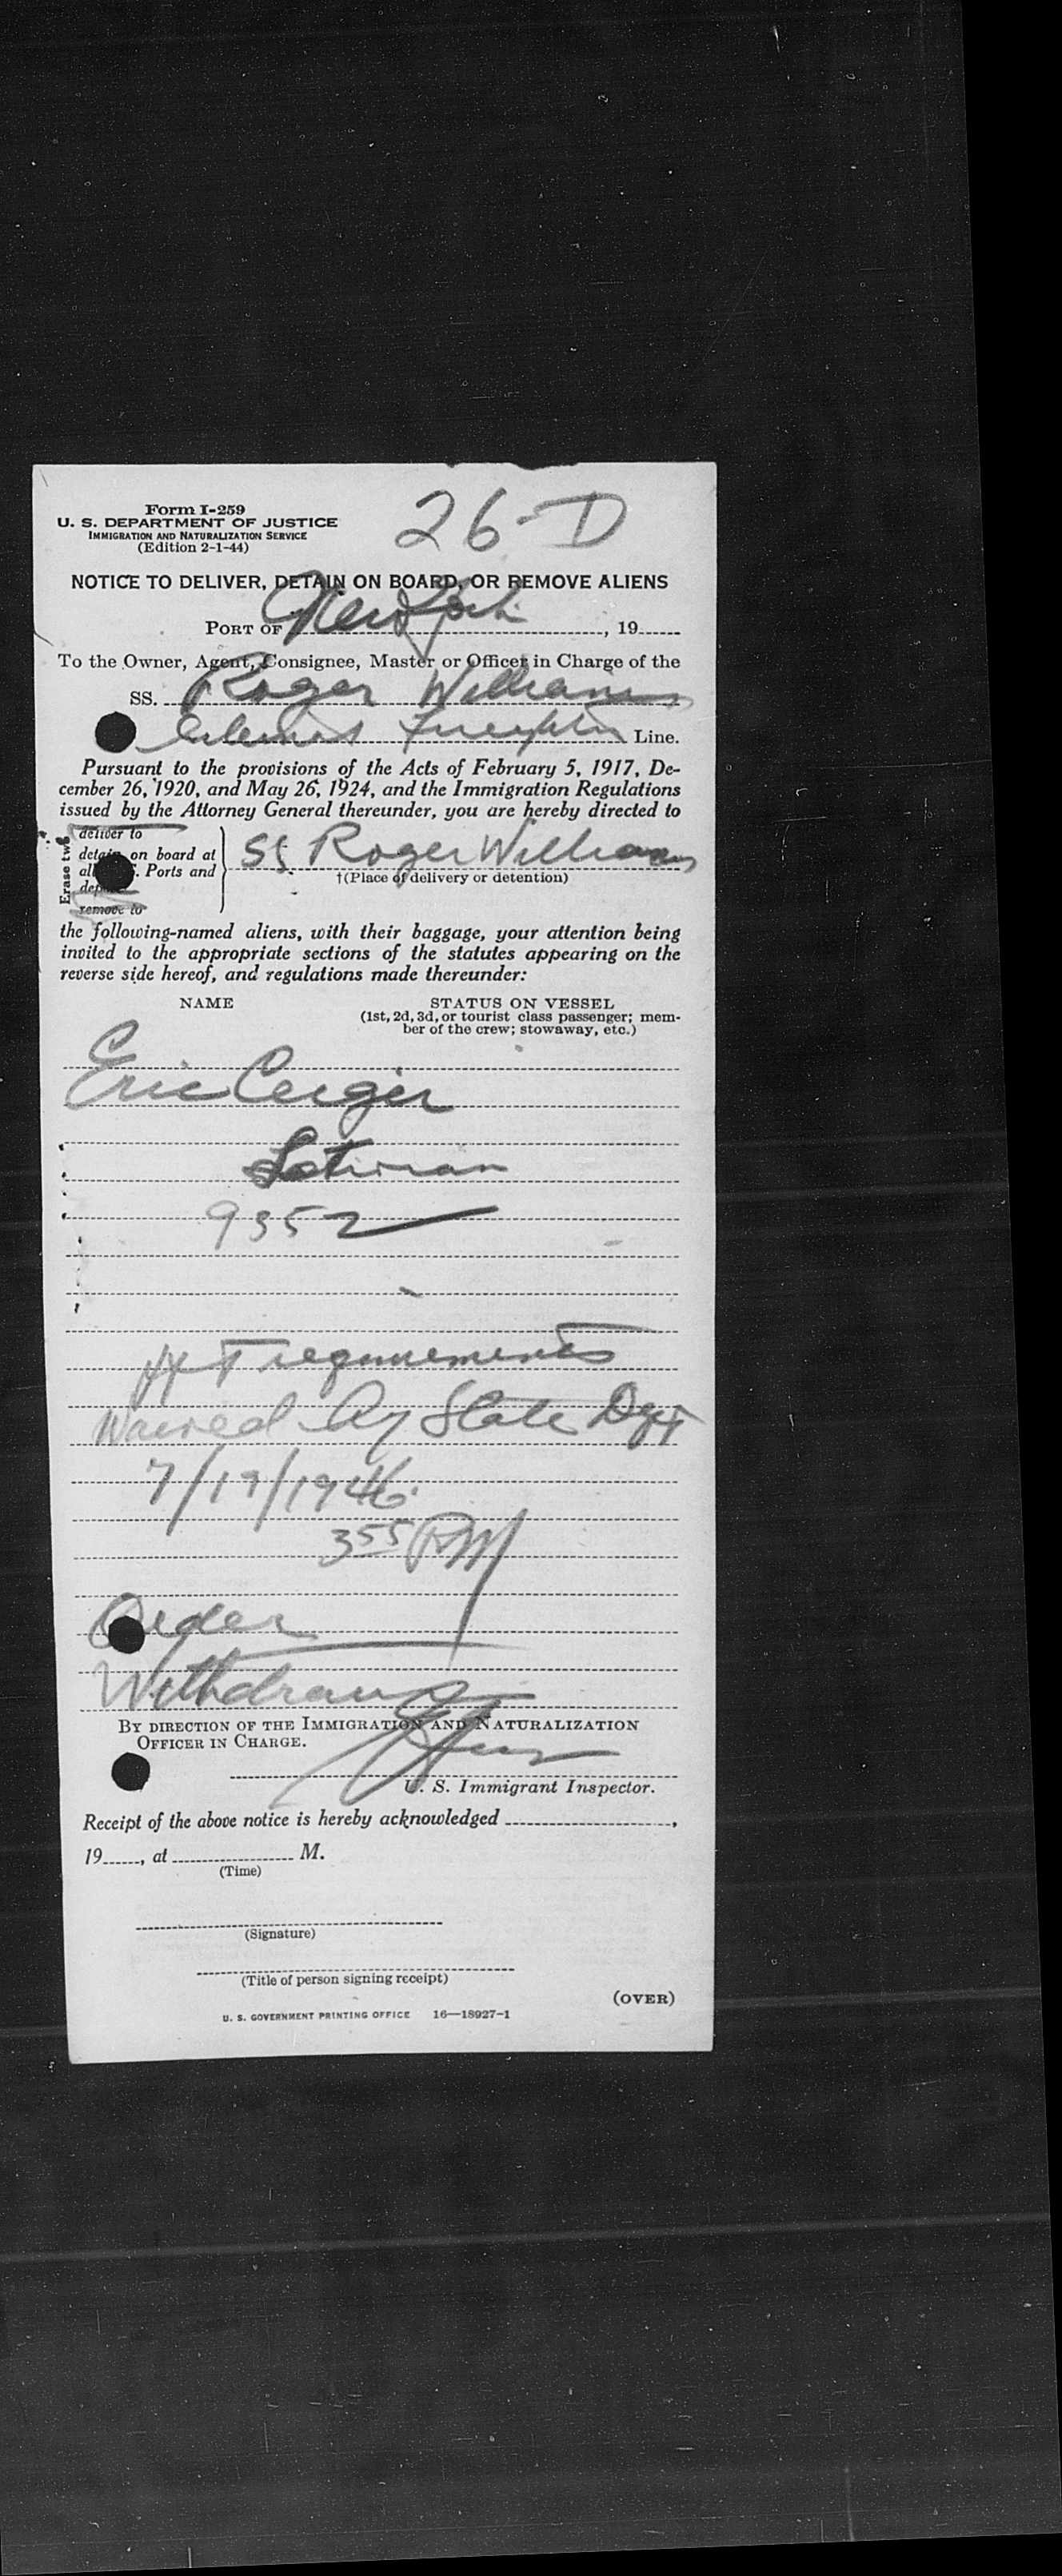 Form I-259
U. S. DEPARTMENT OF JUSTICE
IMMIGRATION AND NATURALIZATION SERVICE
(Edition 2-1-44)
26-D
NOTICE TO DELIVER, DETAIN ON BOARD, OR REMOVE ALIENS
PORT OF New York, 19
To the Owner, Agent, Consignee, Master or Officer in Charge of the
SS. Roger Williams
Line.
Pursuant to the provisions of the Acts of February 5, 1917, De-
cember 26, 1920, and May 26, 1924, and the Immigration Regulations
issued by the Attorney General thereunder, you are hereby directed to
Erase two
deliver to
detain on board at
Ports and
remove to
SS Roger Williams
†(Place of delivery or detention)
the following-named aliens, with their baggage, your attention being
invited to the appropriate sections of the statutes appearing on the
reverse side hereof, and regulations made thereunder:
NAME
STATUS ON VESSEL
(1st, 2d, 3d, or tourist class passenger; mem-
ber of the crew; stowaway, etc.)
Eric
9352
requirements
Waived by State Dept
7/19/1946
3 55 PM
Order
Withdrawn
BY DIRECTION OF THE IMMIGRATION AND NATURALIZATION
OFFICER IN CHARGE.
U. S. Immigrant Inspector.
Receipt of the above notice is hereby acknowledged ,
19 , at M.
(Time)
(Signature)
(Title of person signing receipt)
(OVER)
U. S. GOVERNMENT PRINTING OFFICE 16—18927-1